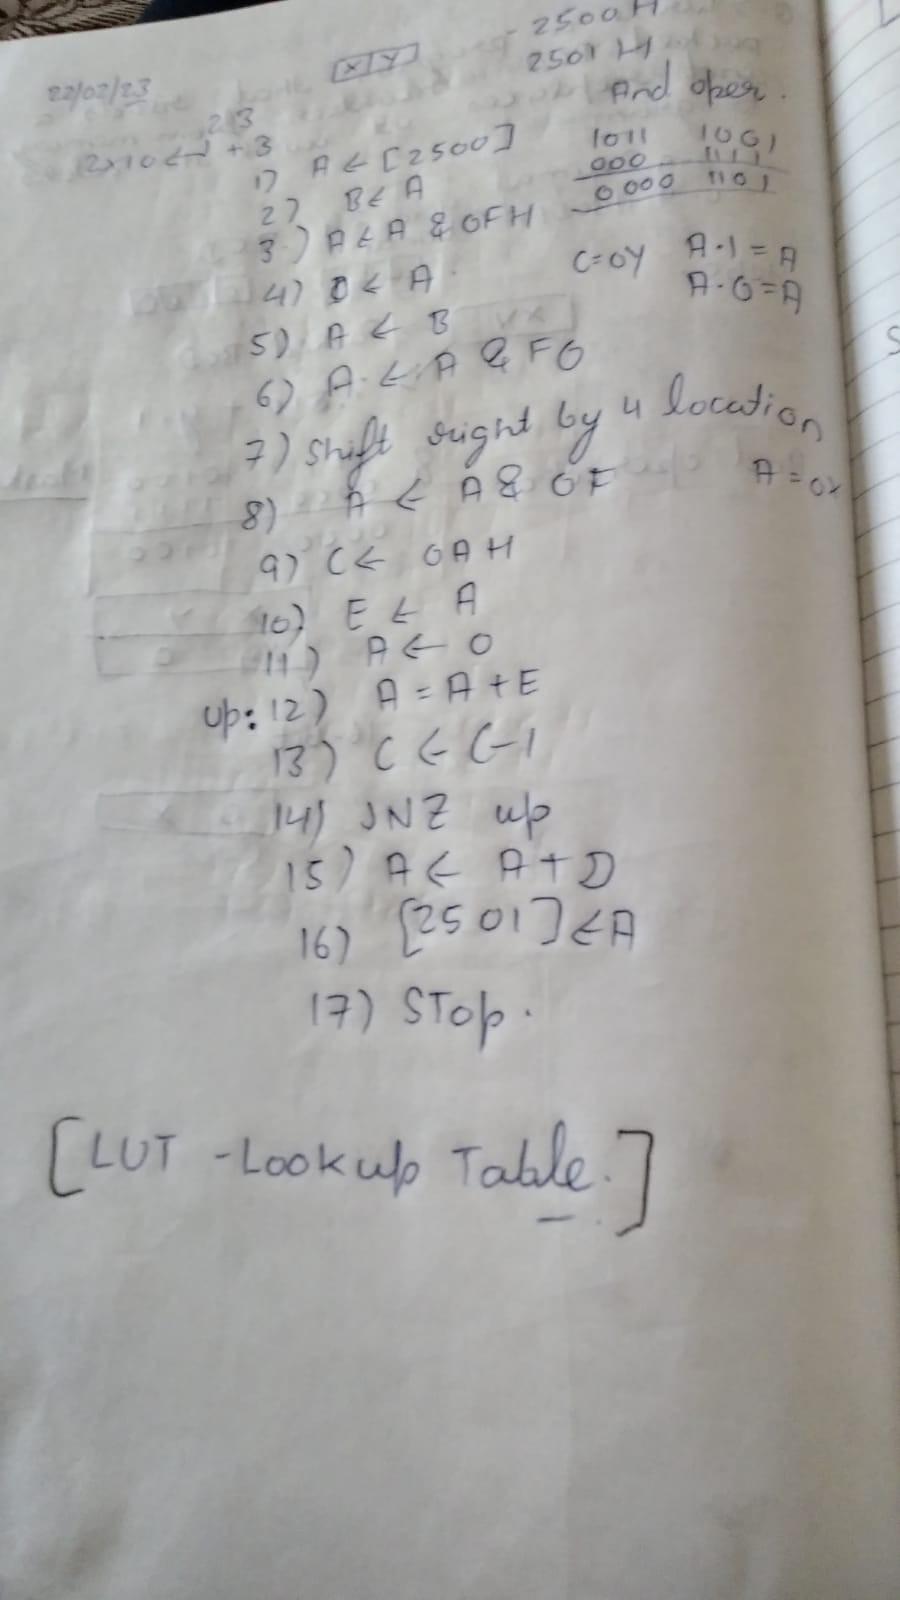 2500H
2501 H
22/02/23
X Y
And oper.
23
2×10 + 3
1011 1001
000 1111
0000 1101
1) A ← [2500]
2) B ← A
3) A ← A & OFH
C=0Y A·1 = A
A·0=A
4) D ← A
5) A ← B
6) A ← A & F0
7) Shift right by 4 location
8) A ← A & OF
A = 0X
9) C ← 0AH
10) E ← A
11) A ← 0
up: 12) A = A + E
13) C ← C-1
14) JNZ up
15) A ← A + D
16) [2501] ← A
17) STop.
[LUT - Lookup Table.]